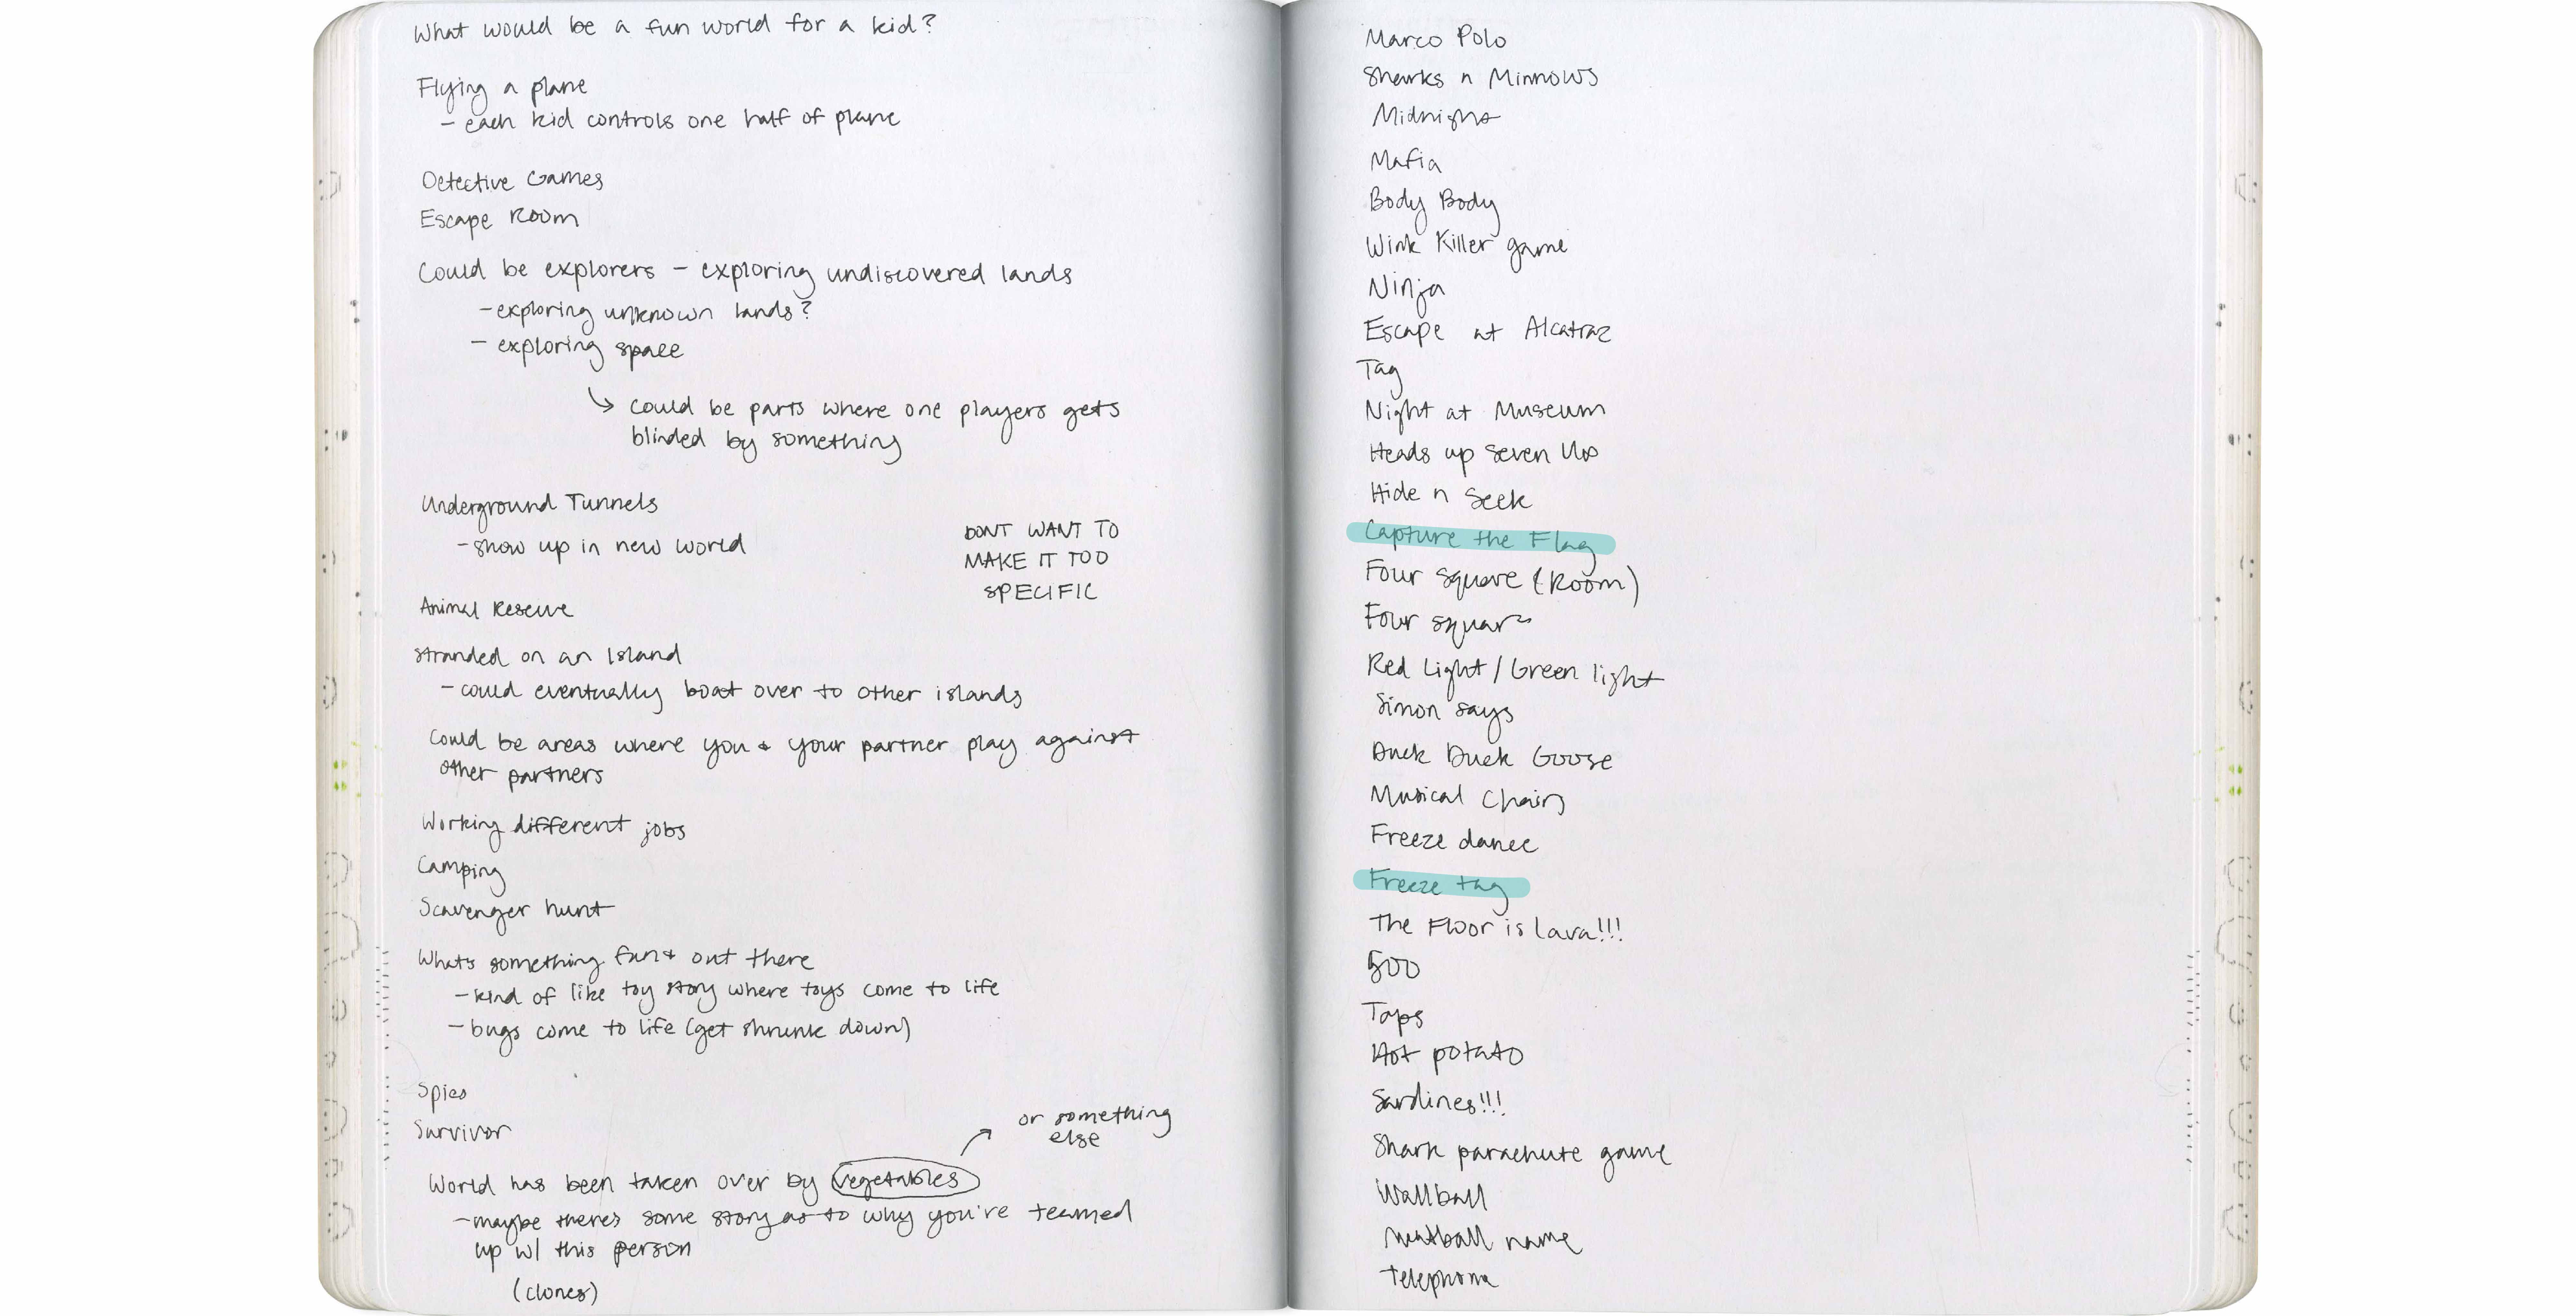 What would be a fun world for a kid?
Flying a plane
- each kid controls one half of plane
Detective Games
Escape Room
Could be explorers - exploring undiscovered lands
- exploring unknown lands?
- exploring space
↳ could be parts where one players gets
blinded by something
Underground Tunnels
- show up in new world
DONT WANT TO
MAKE IT TOO
SPECIFIC
Animal Reserve
Stranded on an Island
- could eventually boat over to other islands
Could be areas where you & your partner play against
other partners
Working different jobs
Camping
Scavenger hunt
Whats something fun & out there
- kind of like toy story where toys come to life
- bugs come to life (get shrunk down)
Spies
Survivor
or something
else
World has been taken over by vegetables
- maybe theres some story as to why you're teamed
up w/ this person
(clones)
Marco Polo
Sharks n Minnows
Midnight
Mafia
Body Body
Wink Killer game
Ninja
Escape at Alcatraz
Tag
Night at Museum
Heads up Seven Up
Hide n Seek
Capture the Flag
Four square (Room)
Four square
Red Light / Green light
Simon says
Duck Duck Goose
Musical Chairs
Freeze dance
Freeze tag
The Floor is Lava!!!
500
Taps
Hot potato
Sardines!!!
Shark parachute game
Wallball
Meatball name
Telephone